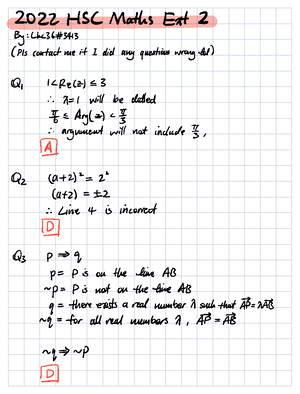 2022 HSC Maths Ext 2
By: Lhc36#3413
(Pls contact me if I did any question wrong lol)
Q1 1 < Re(z) ≤ 3
∴ x=1 will be dotted
π/6 ≤ Arg(z) < π/3
∴ argument will not include π/3,
A
Q2 (a+2)² = 2²
(a+2) = ±2
∴ Line 4 is incorrect
D
Q3 P ⇒ q
p = P is on the line AB
~p = P is not on the line AB
q = there exists a real number λ such that AP = λAB
~q = for all real numbers λ, AP = AB
~q ⇒ ~p
D